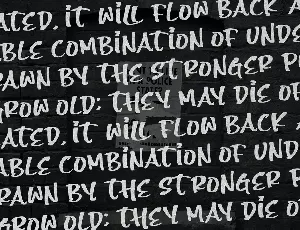 ATED, IT WILL FLOW BACK A
ABLE COMBINATION OF UNDE
RAWN BY THE STRONGER P
GROW OLD: THEY MAY DIE OF
ATED, IT WILL FLOW BACK
ABLE COMBINATION OF UND
RAWN BY THE STRONGER P
GROW OLD: THEY MAY DIE O